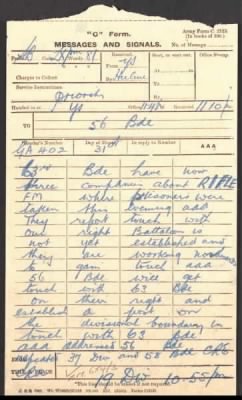 "C" Form.
Army Form C. 2123.
(In books of 100.)
MESSAGES AND SIGNALS.
No. of Message
Prefix Code Words 81
Received. From By
Sent, or sent out.
Office Stamp.
Charges to Collect
Service Instructions
Priority
Handed in at Office Received
TO 56 Bde
Sender's Number Day of Month In reply to Number AAA
GA 402 31
63 Bde have now
three companies about RIFLE
FM where prisoners were
taken this evening aaa
They report touch with
our right Battalion is
not yet established and
they are working
to gain touch aaa
56 Bde will get
touch with 63 Bde
on their right and
establish a post on
the divisional boundary in
touch with 63 Bde
aaa addressed 56 Bde
repeated 37 Div and 58 Bde CRE
FROM
PLACE & TIME
19 Div 10-55 pm